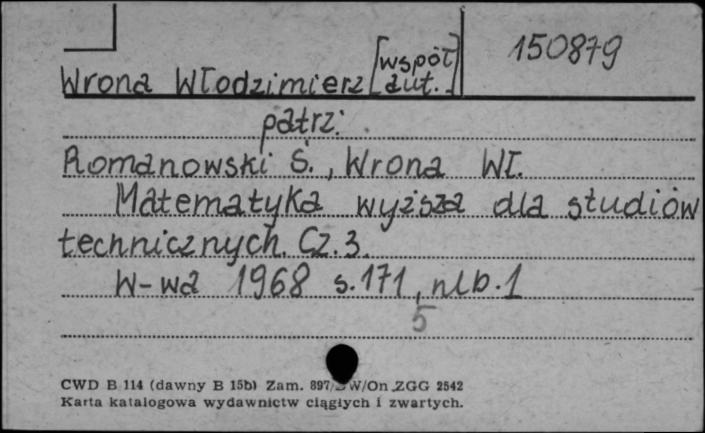 150879
Wrona Włodzimierz [współaut.]
patrz:
Romanowski S., Wrona Wł.
Matematyka wyższa dla studiów
technicznych. Cz. 3.
W-wa 1968 s. 171, nlb. 1
5
CWD B 114 (dawny B 15b) Zam. 897/ W/On ZGG 2542
Karta katalogowa wydawnictw ciągłych i zwartych.